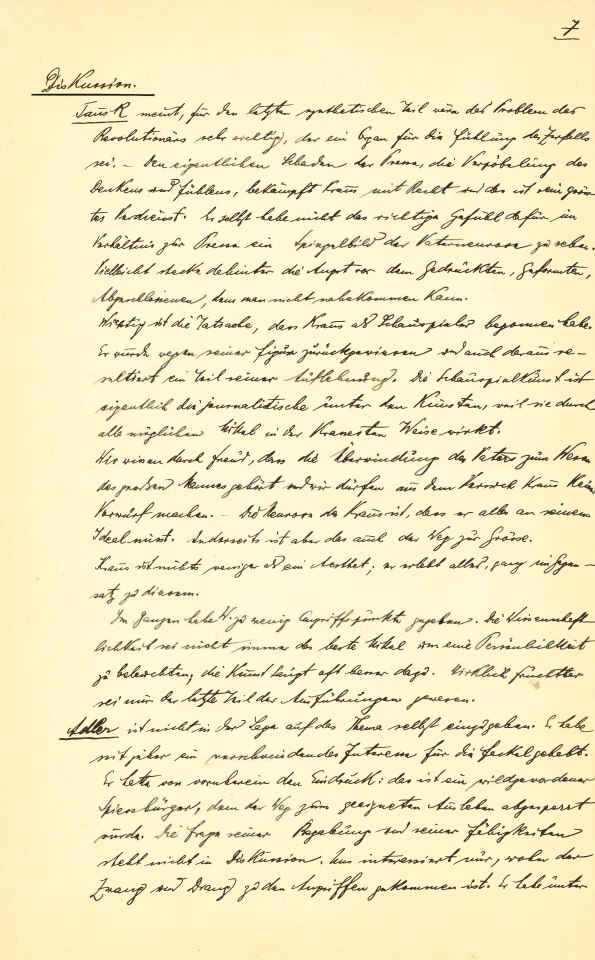 7
Diskussion.
Tausk meint, für den letzten synthetischen Teil wäre das Problem des
Revolutionärs sehr wichtig, der ein Organ für die Fühlung des Zerfalls
sei. – Den eigentlichen Schaden der Presse, die Verpöbelung des
Denkens und Fühlens, bekämpft Kraus mit Recht und das ist sein gröss-
tes Verdienst. Er selbst habe nicht das richtige Gefühl dafür im
Verhältnis zur Presse ein Spiegelbild der Vaterneurose zu sehen.
Vielleicht stecke dahinter die Angst vor dem Gedruckten, Geformten,
Abgeschlossenen, dem man nicht nahekommen kann.
Wichtig ist die Tatsache, dass Kraus als Schauspieler begonnen habe.
Er wurde wegen seiner Figur zurückgewiesen und auch daraus re-
sultiert ein Teil seiner Auflehnung. Die Schauspielkunst ist
eigentlich die journalistische unter den Künsten, weil sie durch
alle möglichen Mittel in der Weise wirkt.
Wir wissen durch Freud, dass die Überwindung des Vaters zum Wesen
des grossen Mannes gehört und wir dürfen aus dem Versuch Kraus keinen
Vorwurf machen. – Die Neurose des Kraus ist, dass er alles an seinem
Ideal misst. Anderseits ist aber das auch der Weg zur Grösse.
Kraus ist nichts weniger als ein Aesthet; er erlebt alles, ganz im Gegen-
satz zu diesem.
Im Ganzen habe W. zu wenig Angriffspunkte gegeben. Die Wissenschaft-
lichkeit sei nicht immer das beste Mittel um eine Persönlichkeit
zu beleuchten; die Kunst taugt oft besser dazu. Wirklich fruchtbar
sei nur der letzte Teil der Ausführungen gewesen.
Adler ist nicht in der Lage auf das Thema selbst einzugehen. Er habe
seit jeher ein verschwindendes Interesse für die Fackel gehabt.
Er hatte von vornherein den Eindruck: das ist ein wildgewordener
Spiessbürger, dem der Weg zum geeigneten Ausleben abgesperrt
wurde. Die Frage seiner Begabung und seiner Fähigkeiten
steht nicht in Diskussion. Uns interessiert nur, woher der
Zwang und Drang zu den Angriffen gekommen ist. Er habe unter